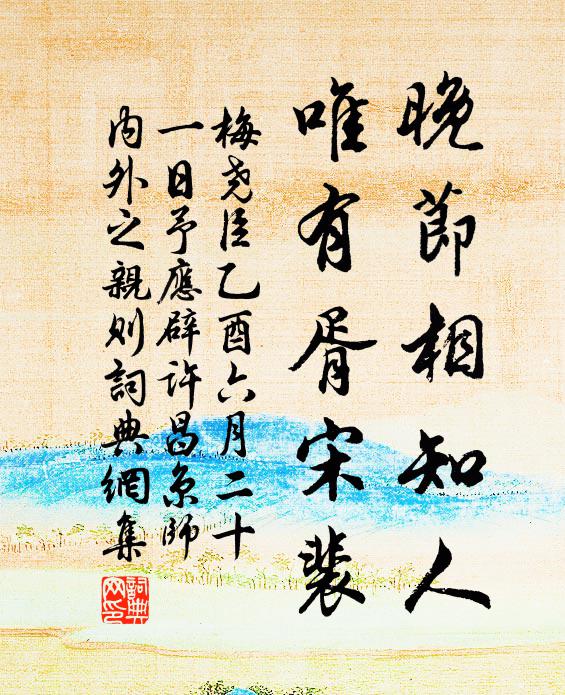 晚節相知人
唯有胥宋裴
梅堯臣乙酉六月二十
一日予應辟許昌京師
內外之親則詞典網集